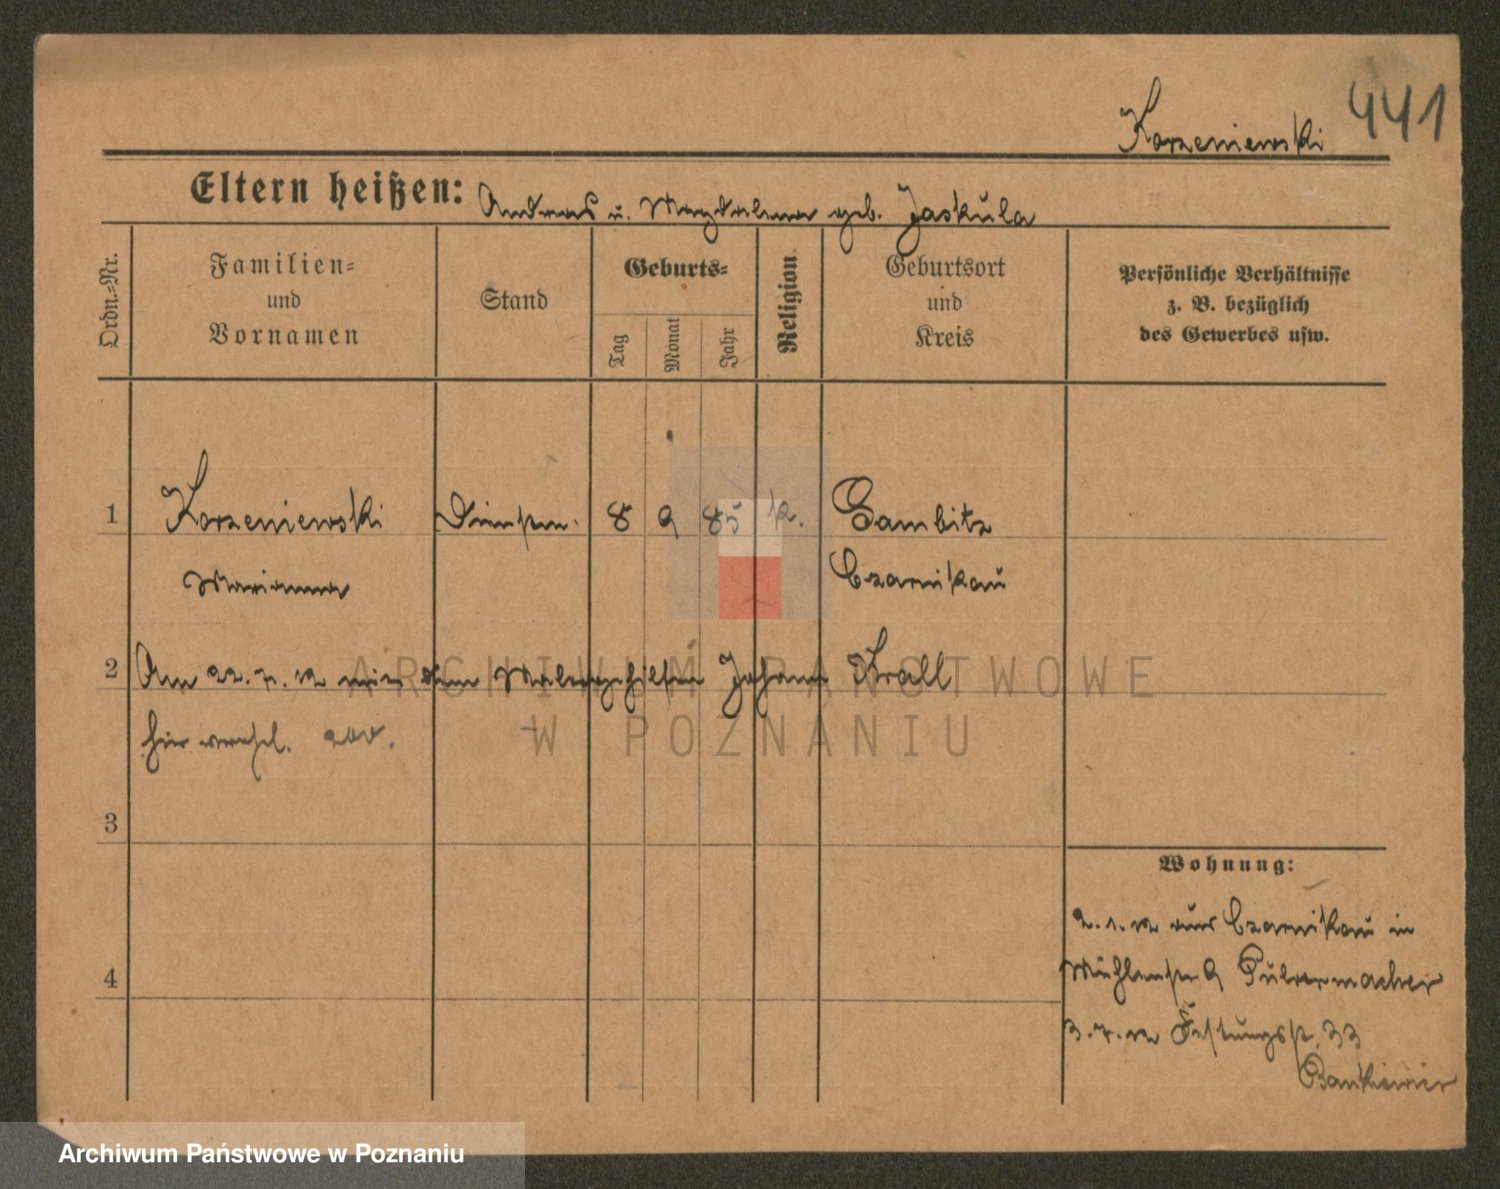 441
Korzeniewski
Eltern heißen: Andreas u. Magdalena geb. Jaskula
Ordn.-Nr.
Familien-
und
Vornamen
Stand
Geburts-
Tag
Monat
Jahr
Religion
Geburtsort
und
Kreis
Persönliche Verhältnisse
z. B. bezüglich
des Gewerbes usw.
1 Korzeniewski 8 9 85 k. Gembitz
Marianna Czarnikau
2 Am 22.7.12 mit dem Malergehilfen Johann Krall
hier verehel.
3
4
Wohnung:
2.1.12 aus Czarnikau in
Mühlenstr 9 Pulvermacher
3.7.12 Festungsstr. 33
ARCHIWUM PAŃSTWOWE
W POZNANIU
Archiwum Państwowe w Poznaniu